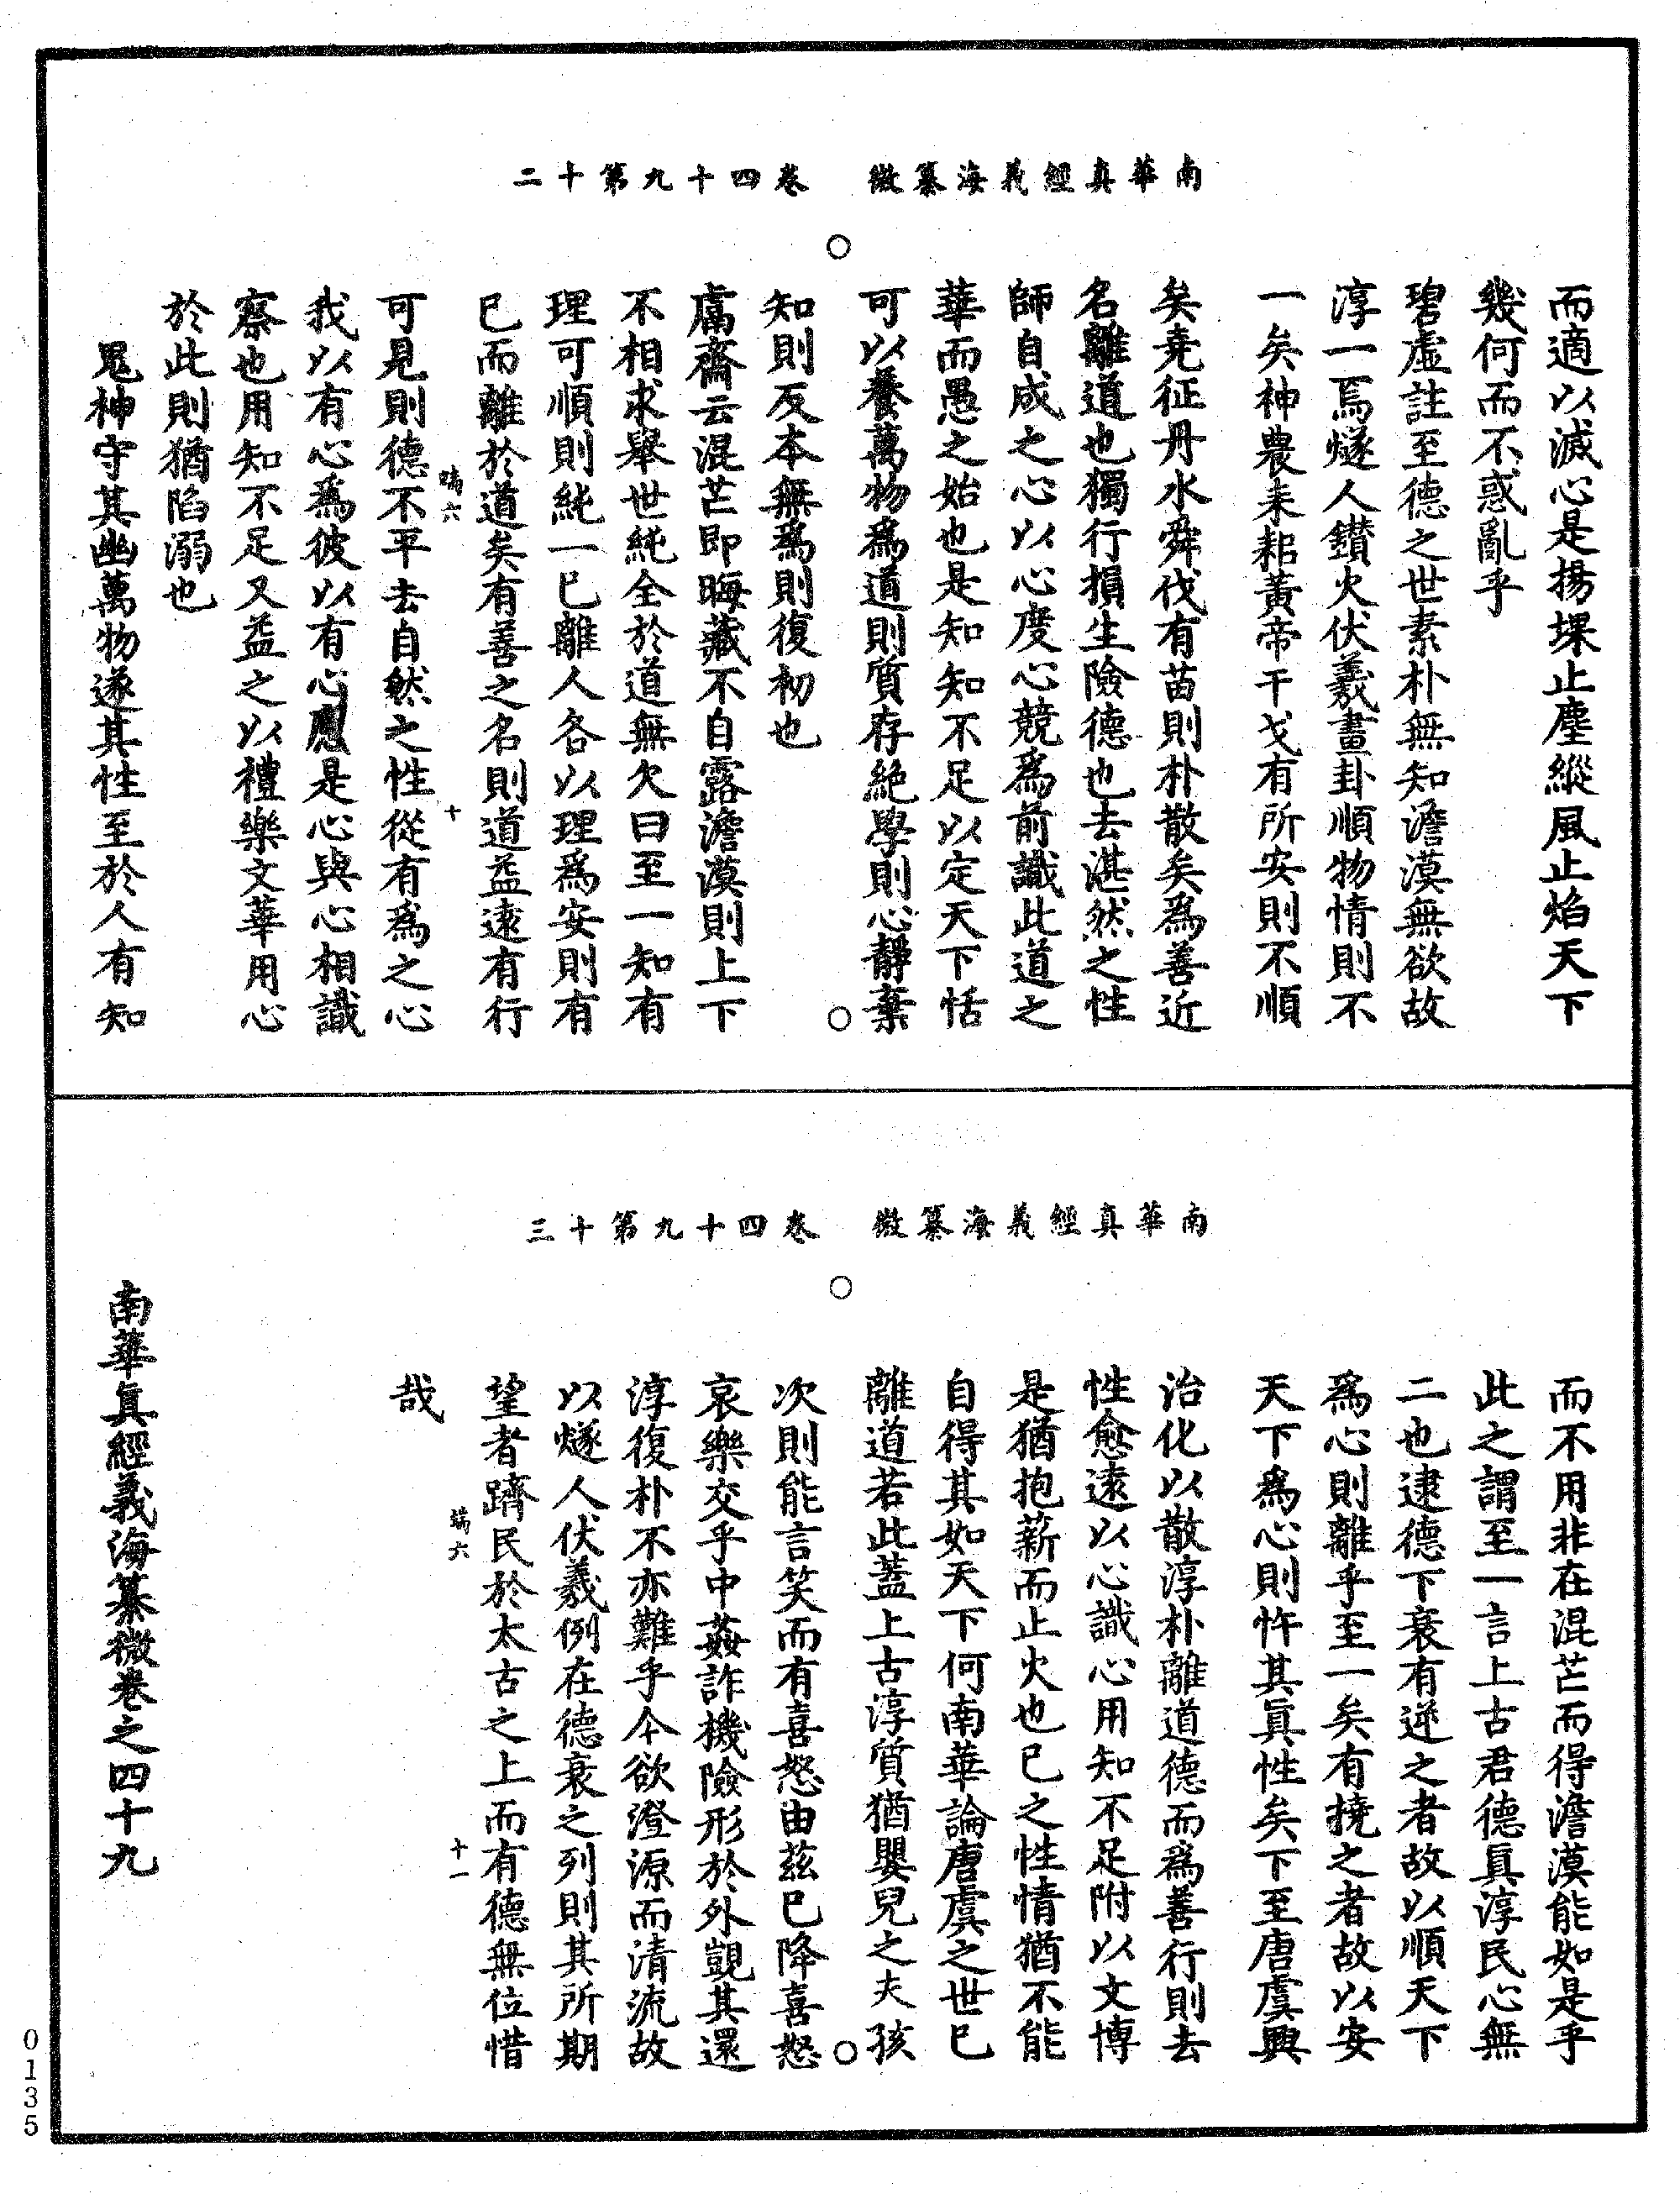 南華真經義海纂微　卷四十九第十二
而適以滅心是揚堁止塵縱風止焰天下
幾何而不惑亂乎
碧虛註至德之世素朴無知澹漠無欲故
淳一焉燧人鑚火伏羲畫卦順物情則不
一矣神農耒耜黃帝干戈有所安則不順
矣堯征丹水舜伐有苗則朴散矣爲善近
名離道也獨行損生險德也去湛然之性
師自成之心以心度心競爲前識此道之
華而愚之始也是知知不足以定天下恬
可以養萬物爲道則質存絕學則心靜棄
知則反本無爲則復初也
鬳齋云混芒即晦藏不自露澹漠則上下
不相求舉世純全於道無欠曰至一知有
理可順則純一已離人各以理爲安則有
已而離於道矣有善之名則道益逺有行
端六　十
可見則德不平去自然之性從有爲之心
我以有心爲彼以有心應是心與心相識
察也用知不足又益之以禮樂文華用心
於此則猶陷溺也
鬼神守其幽萬物遂其性至於人有知
南華真經義海纂微　卷四十九第十三
而不用非在混芒而得澹漠能如是乎
此之謂至一言上古君德眞淳民心無
二也逮德下衰有逆之者故以順天下
爲心則離乎至一矣有撓之者故以安
天下爲心則忤其眞性矣下至唐虞興
治化以散淳朴離道德而爲善行則去
性愈逺以心識心用知不足附以文博
是猶抱薪而止火也已之性情猶不能
自得其如天下何南華論唐虞之世已
離道若此蓋上古淳質猶嬰兒之夫孩
次則能言笑而有喜怒由茲已降喜怒
哀樂交乎中姦詐機險形於外覬其還
淳復朴不亦難乎今欲澄源而清流故
以燧人伏羲例在德衰之列則其所期
望者躋民於太古之上而有德無位惜
端六　十一
哉
南華眞經義海纂微卷之四十九
0135